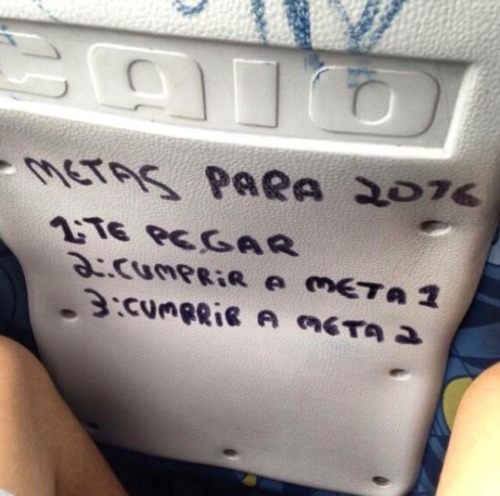 CAIO
METAS PARA 2016
1:TE PEGAR
2:CUMPRIR A META 1
3:CUMPRIR A META 2